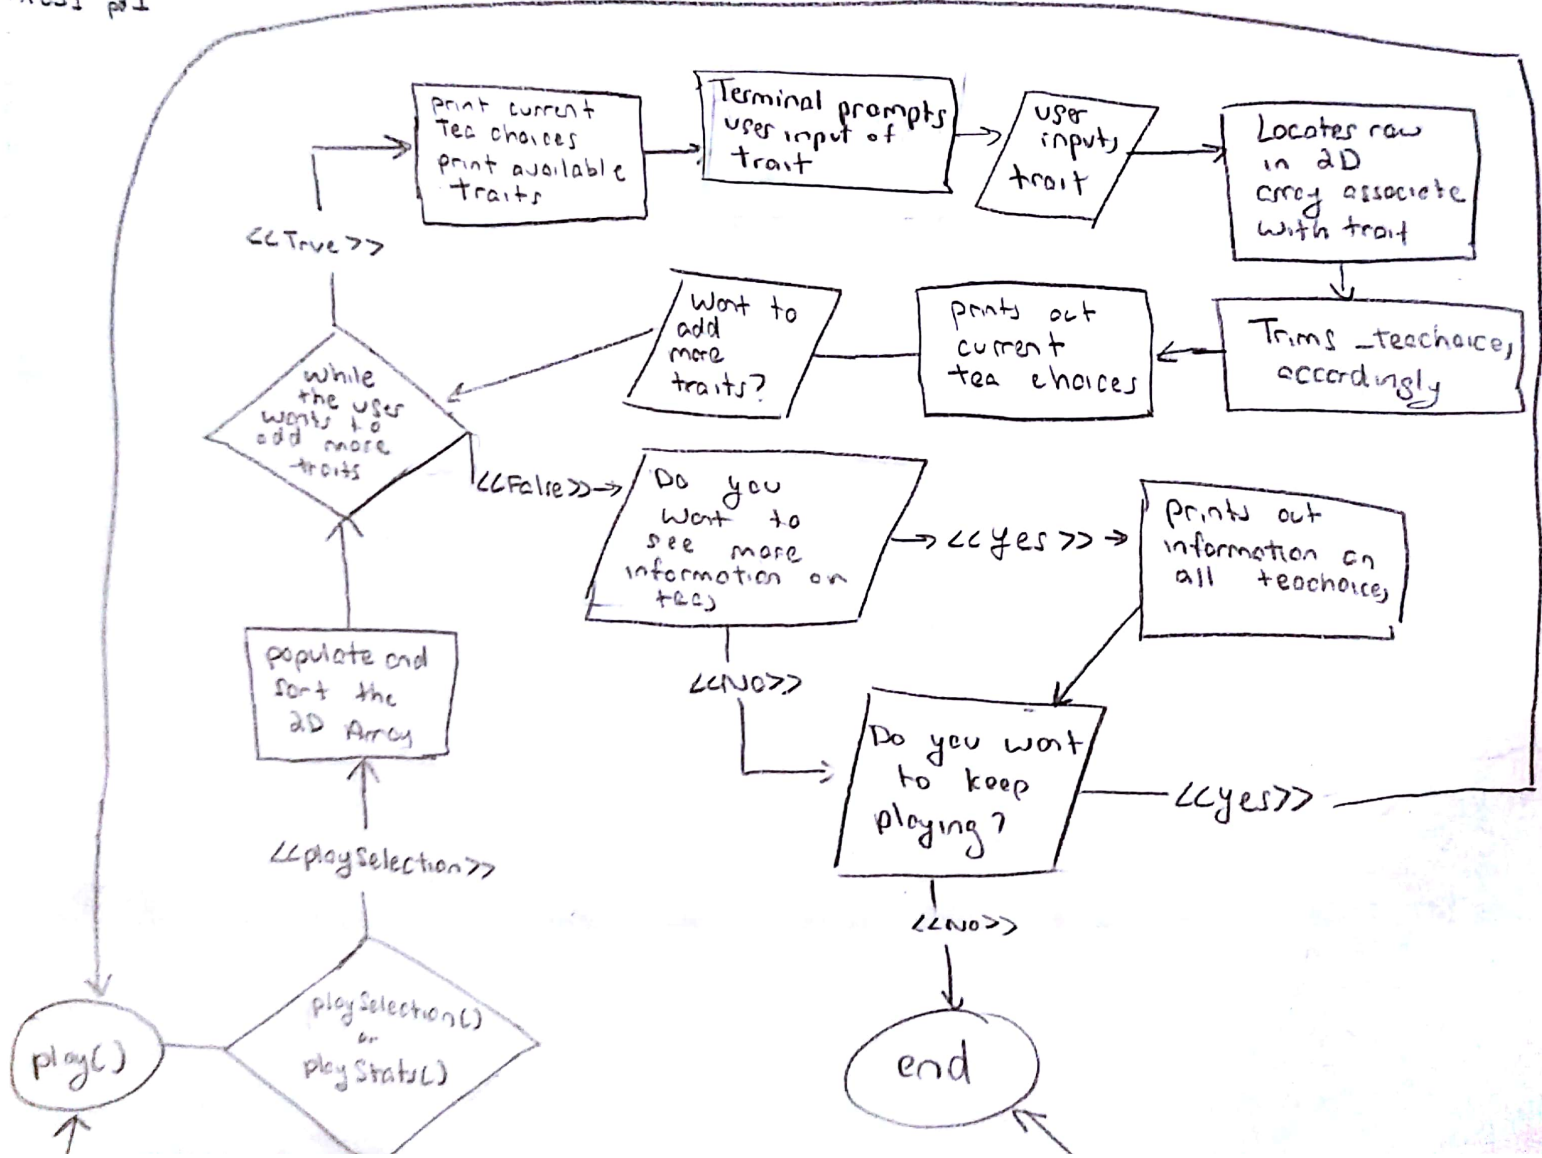 print current
Tea choices
print available
traits
Terminal prompts
user input of
trait
user
inputs
trait
Locates row
in 2D
array associate
with trait
<<True>>
Want to
add
more
traits?
prints out
current
tea choices
Trims _teachoices
accordingly
while
the user
wants to
add more
traits
<<False>>
Do you
want to
see more
information on
teas
<<yes>>
prints out
information on
all teachoices
populate and
sort the
2D Array
<<No>>
Do you want
to keep
playing?
<<yes>>
<<playSelection>>
<<No>>
play()
playSelection()
or
playStats()
end